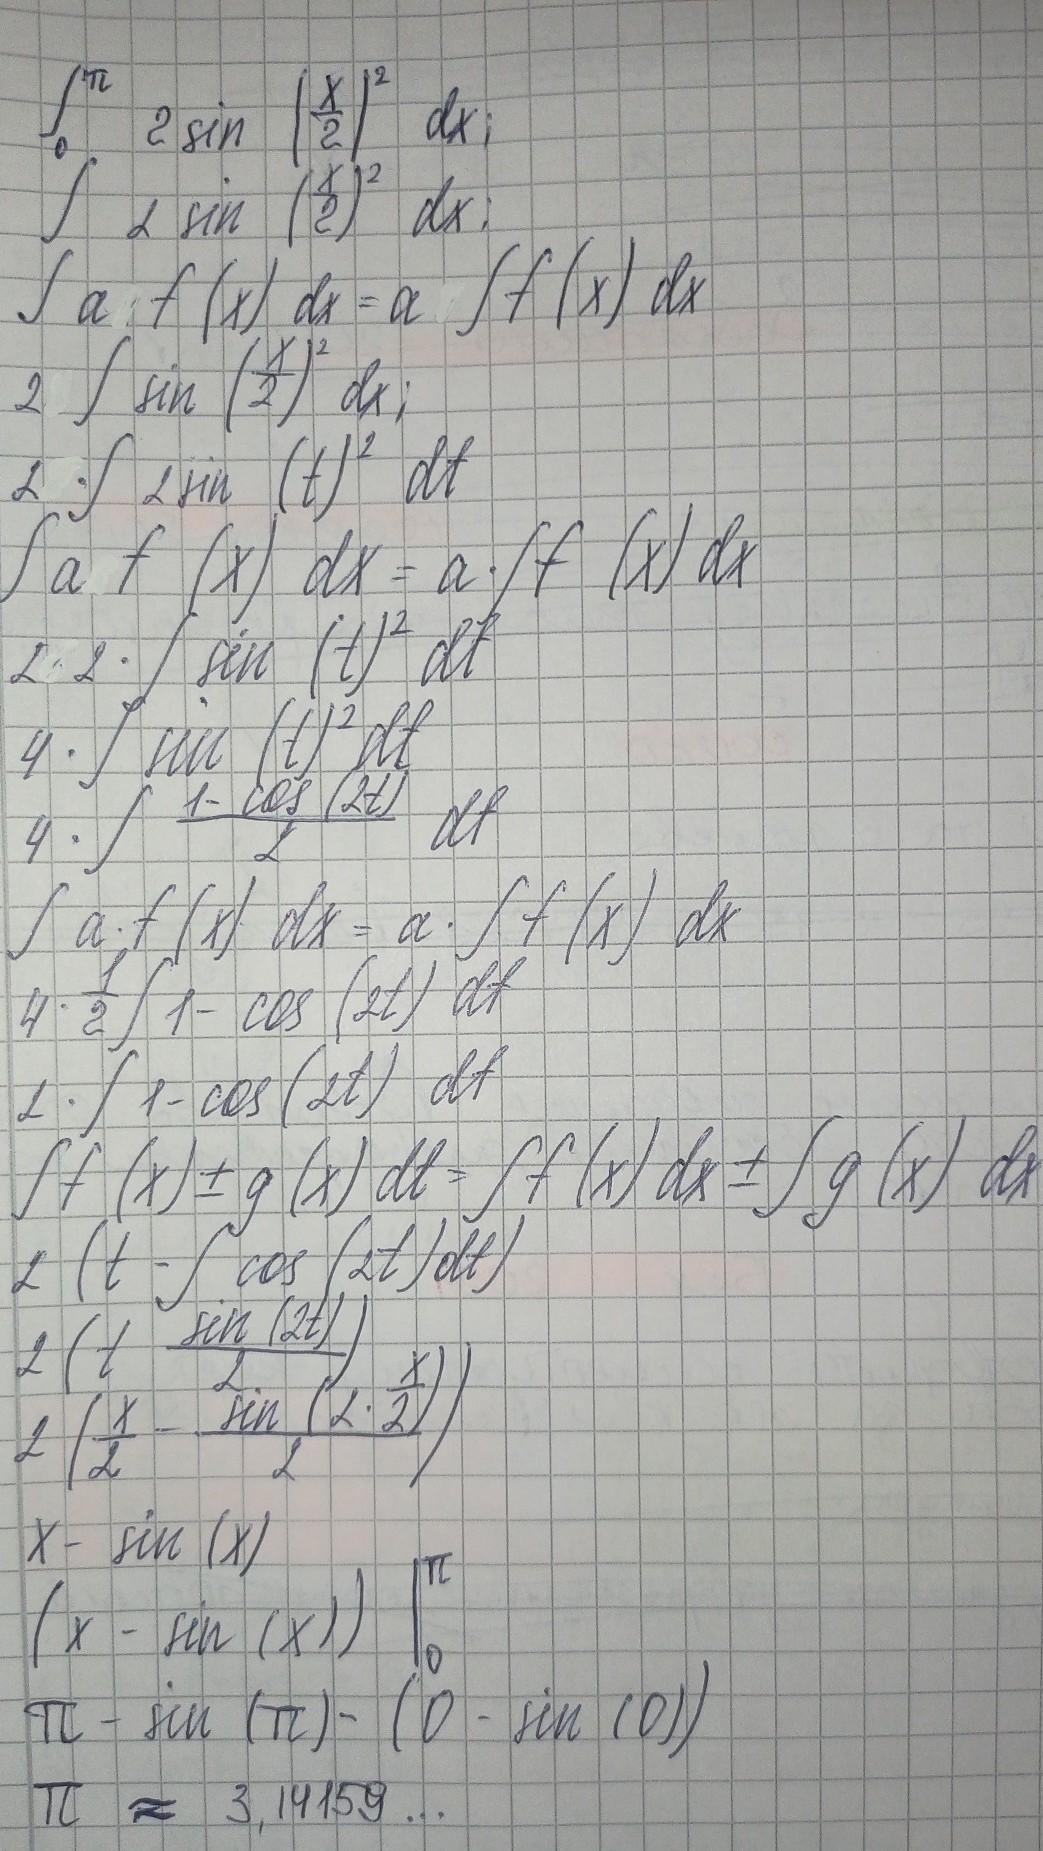 ∫₀^π 2 sin (x/2)² dx;
∫ 2 sin (x/2)² dx;
∫ a · f (x) dx = a · ∫ f (x) dx
2 ∫ sin (x/2)² dx;
2 · ∫ 2 sin (t)² dt
∫ a f (x) dx = a · ∫ f (x) dx
2 · 2 · ∫ sin (t)² dt
4 · ∫ sin (t)² dt
4 · ∫ (1 - cos (2t))/2 dt
∫ a · f (x) dx = a · ∫ f (x) dx
4 · 1/2 ∫ 1 - cos (2t) dt
2 · ∫ 1 - cos (2t) dt
∫ f (x) ± g (x) dt = ∫ f (x) dx ± ∫ g (x) dx
2 (t - ∫ cos (2t) dt)
2 (t sin (2t)/2)
2 (x/2 - sin (2 · x/2)/2))
x - sin (x)
(x - sin (x)) |₀^π
π - sin (π) - (0 - sin (0))
π ≈ 3,14159...